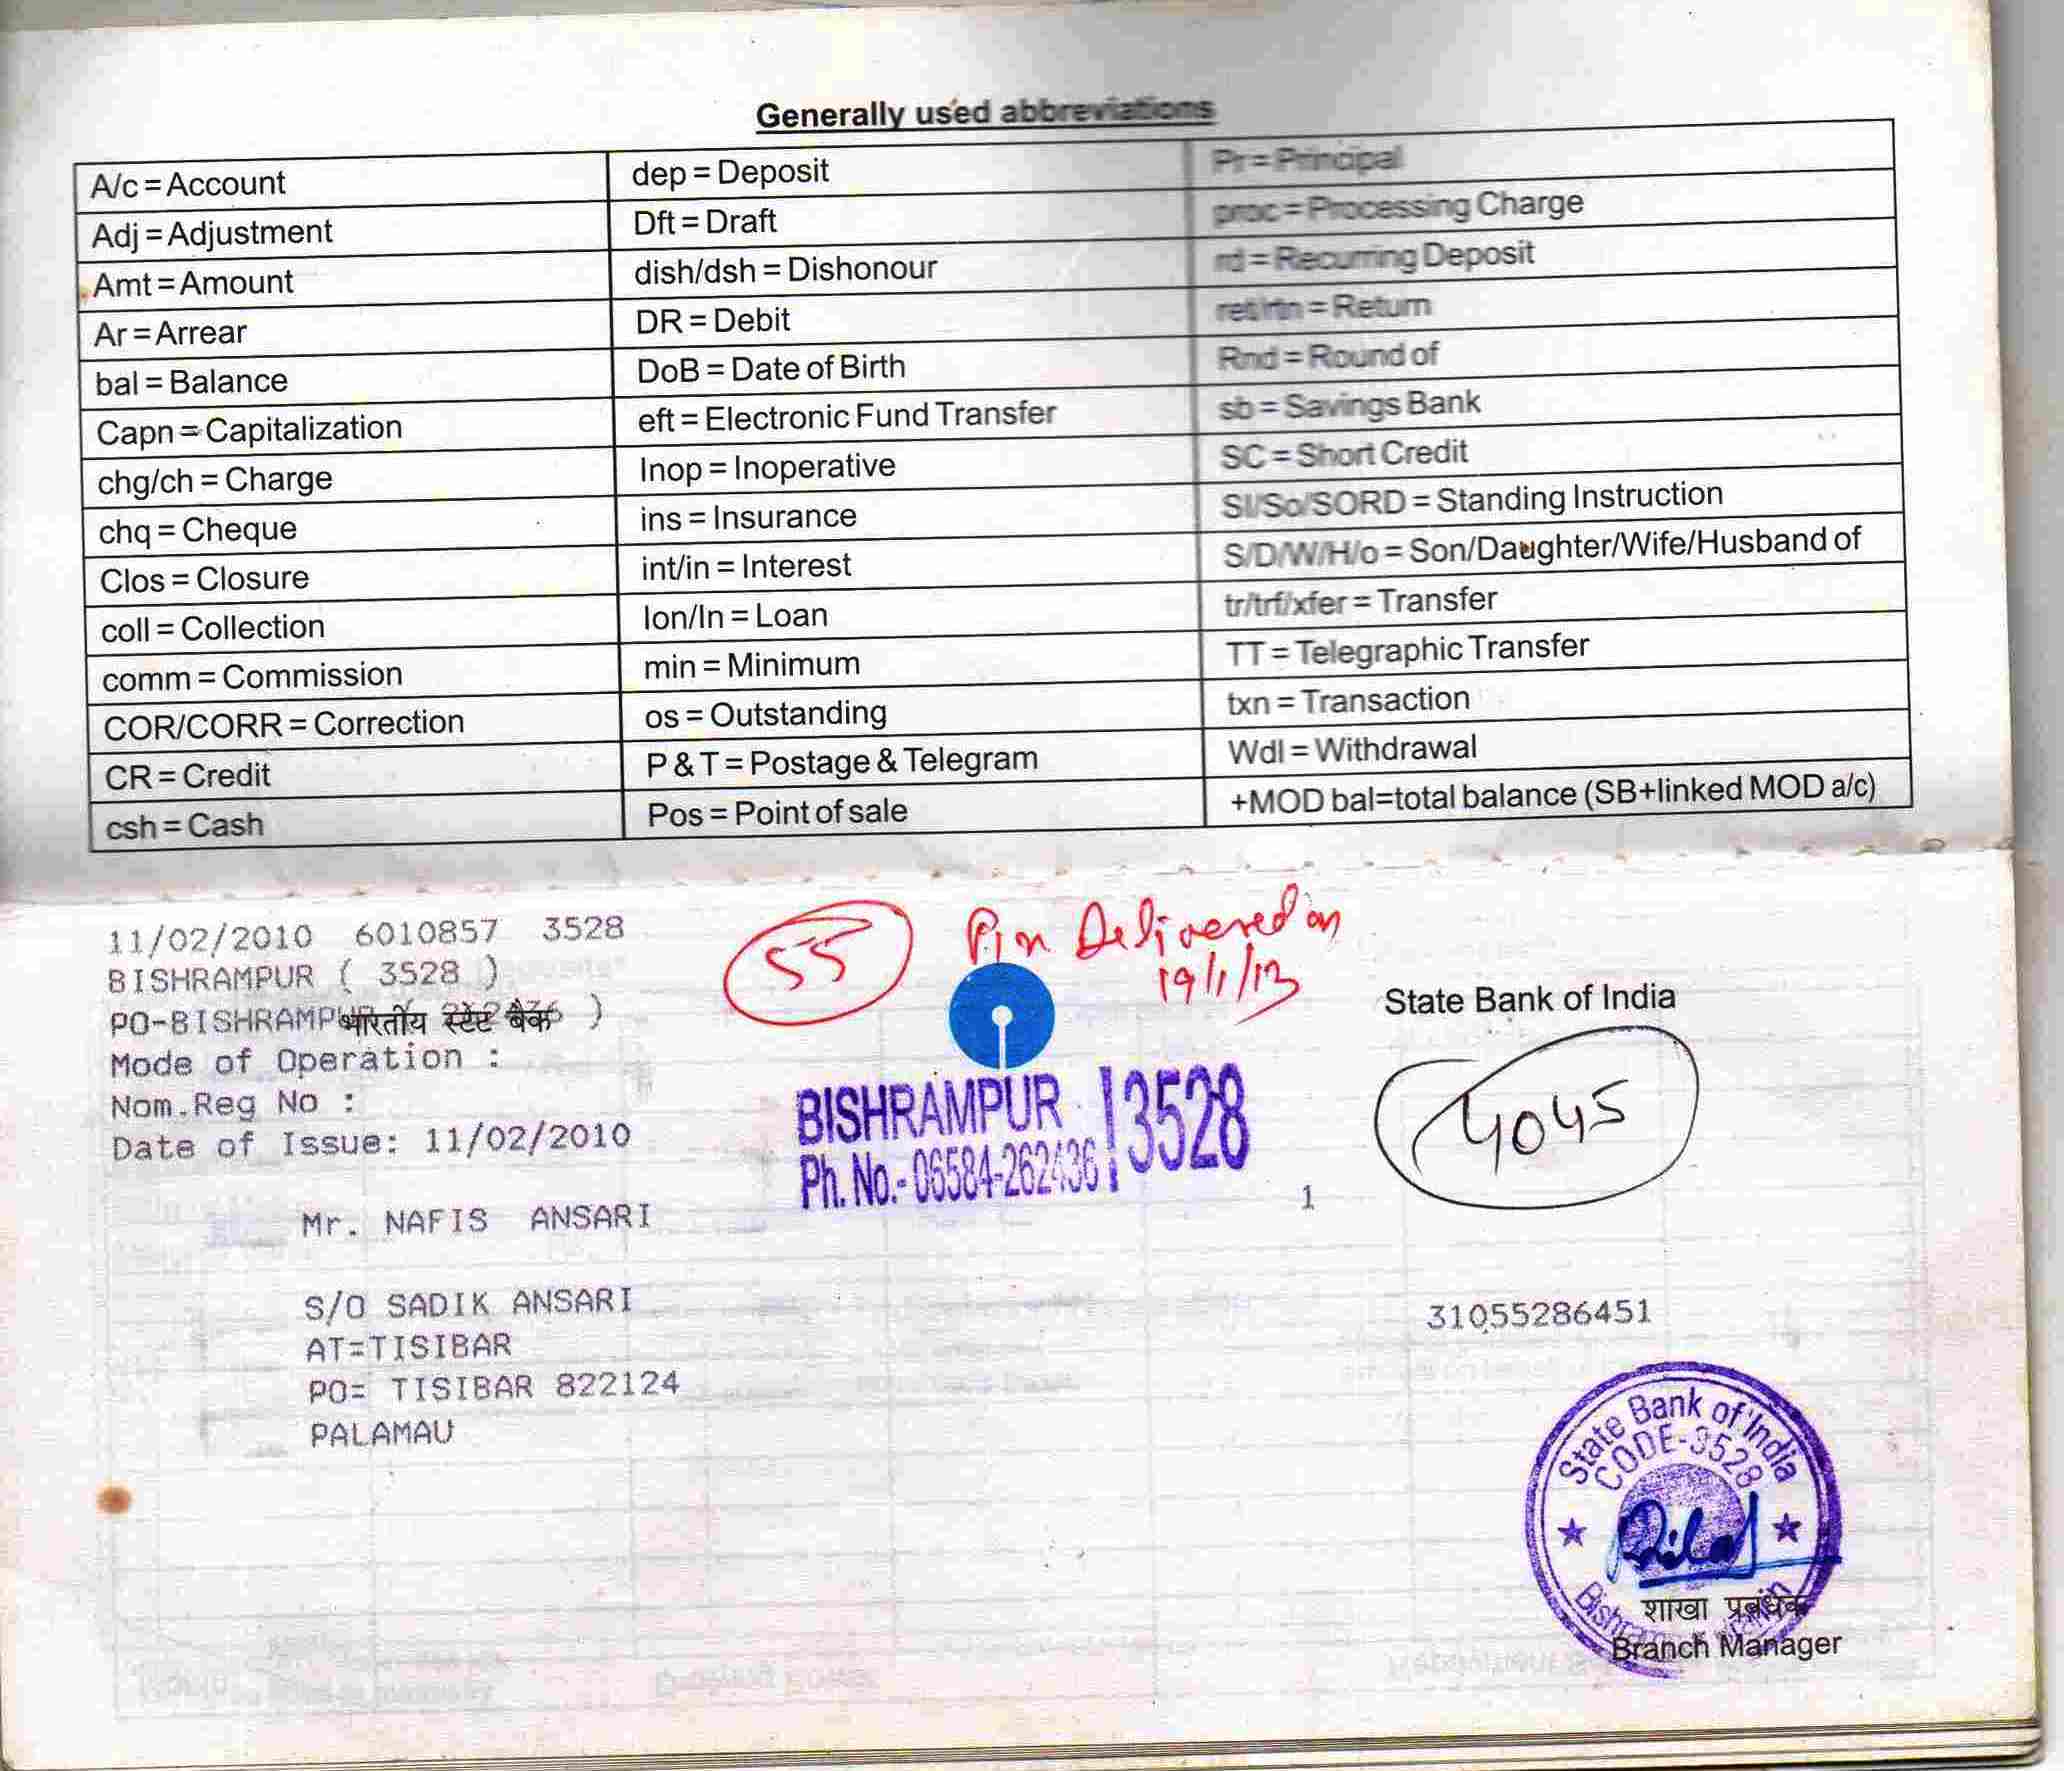 Generally used abbreviations
A/c = Account dep = Deposit Pr = Principal
Adj = Adjustment Dft = Draft proc = Processing Charge
Amt = Amount dish/dsh = Dishonour rd = Recurring Deposit
Ar = Arrear DR = Debit ret/rtn = Return
bal = Balance DoB = Date of Birth Rnd = Round of
Capn = Capitalization eft = Electronic Fund Transfer sb = Savings Bank
chg/ch = Charge Inop = Inoperative SC = Short Credit
chq = Cheque ins = Insurance SI/So/SORD = Standing Instruction
Clos = Closure int/in = Interest S/D/W/H/o = Son/Daughter/Wife/Husband of
coll = Collection lon/ln = Loan tr/trf/xfer = Transfer
comm = Commission min = Minimum TT = Telegraphic Transfer
COR/CORR = Correction os = Outstanding txn = Transaction
CR = Credit P & T = Postage & Telegram Wdl = Withdrawal
csh = Cash Pos = Point of sale +MOD bal=total balance (SB+linked MOD a/c)
11/02/2010 6010857 3528
55 Pin Delivered on
19/1/13
BISHRAMPUR ( 3528 )
PO-BISHRAMPUR )
भारतीय स्टेट बैंक State Bank of India
Mode of Operation :
Nom.Reg No :
Date of Issue: 11/02/2010
BISHRAMPUR 3528
Ph. No.- 06584-262436
4045
1
Mr. NAFIS ANSARI
S/O SADIK ANSARI 31055286451
AT=TISIBAR
PO= TISIBAR 822124
PALAMAU
State Bank of India
CODE-3528
शाखा प्रबंधक
Branch Manager